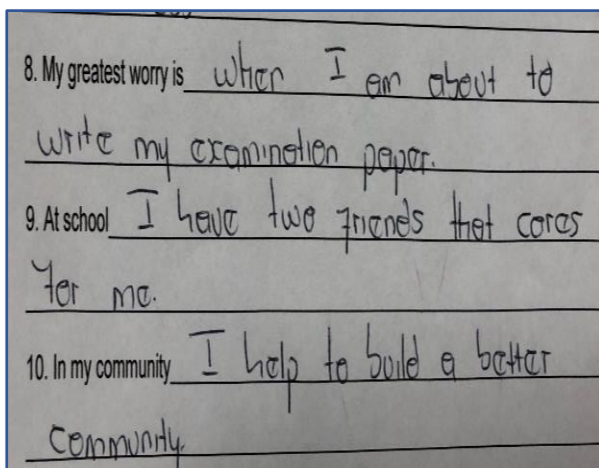 8. My greatest worry is when I am about to
write my examination paper.
9. At school I have two friends that cares
for me.
10. In my community I help to build a better
community.